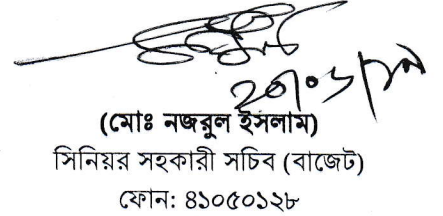 (মোঃ নজরুল ইসলাম)
সিনিয়র সহকারী সচিব (বাজেট)
ফোন: ৪১০৫০১২৮